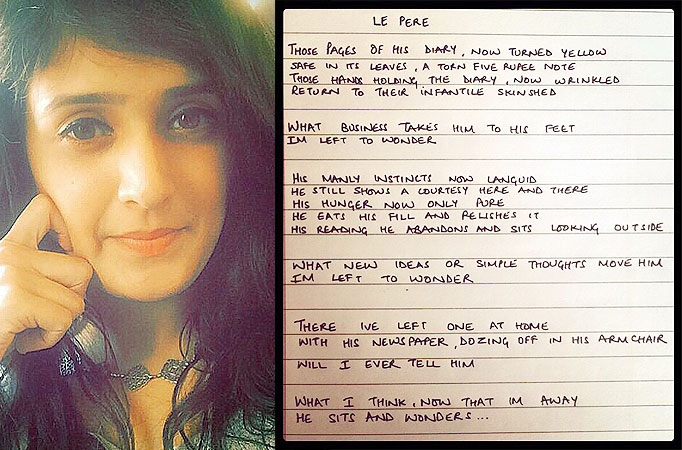 LE PERE
THOSE PAGES OF HIS DIARY, NOW TURNED YELLOW
SAFE IN ITS LEAVES, A TORN FIVE RUPEE NOTE
THOSE HANDS HOLDING THE DIARY, NOW WRINKLED
RETURN TO THEIR INFANTILE SKINSHED
WHAT BUSINESS TAKES HIM TO HIS FEET
IM LEFT TO WONDER
HIS MANLY INSTINCTS NOW LANGUID
HE STILL SHOWS A COURTESY HERE AND THERE
HIS HUNGER NOW ONLY PURE
HE EATS HIS FILL AND RELISHES IT
HIS READING HE ABANDONS AND SITS LOOKING OUTSIDE
WHAT NEW IDEAS OR SIMPLE THOUGHTS MOVE HIM
IM LEFT TO WONDER
THERE IVE LEFT ONE AT HOME
WITH HIS NEWSPAPER, DOZING OFF IN HIS ARMCHAIR
WILL I EVER TELL HIM
WHAT I THINK, NOW THAT IM AWAY
HE SITS AND WONDERS...